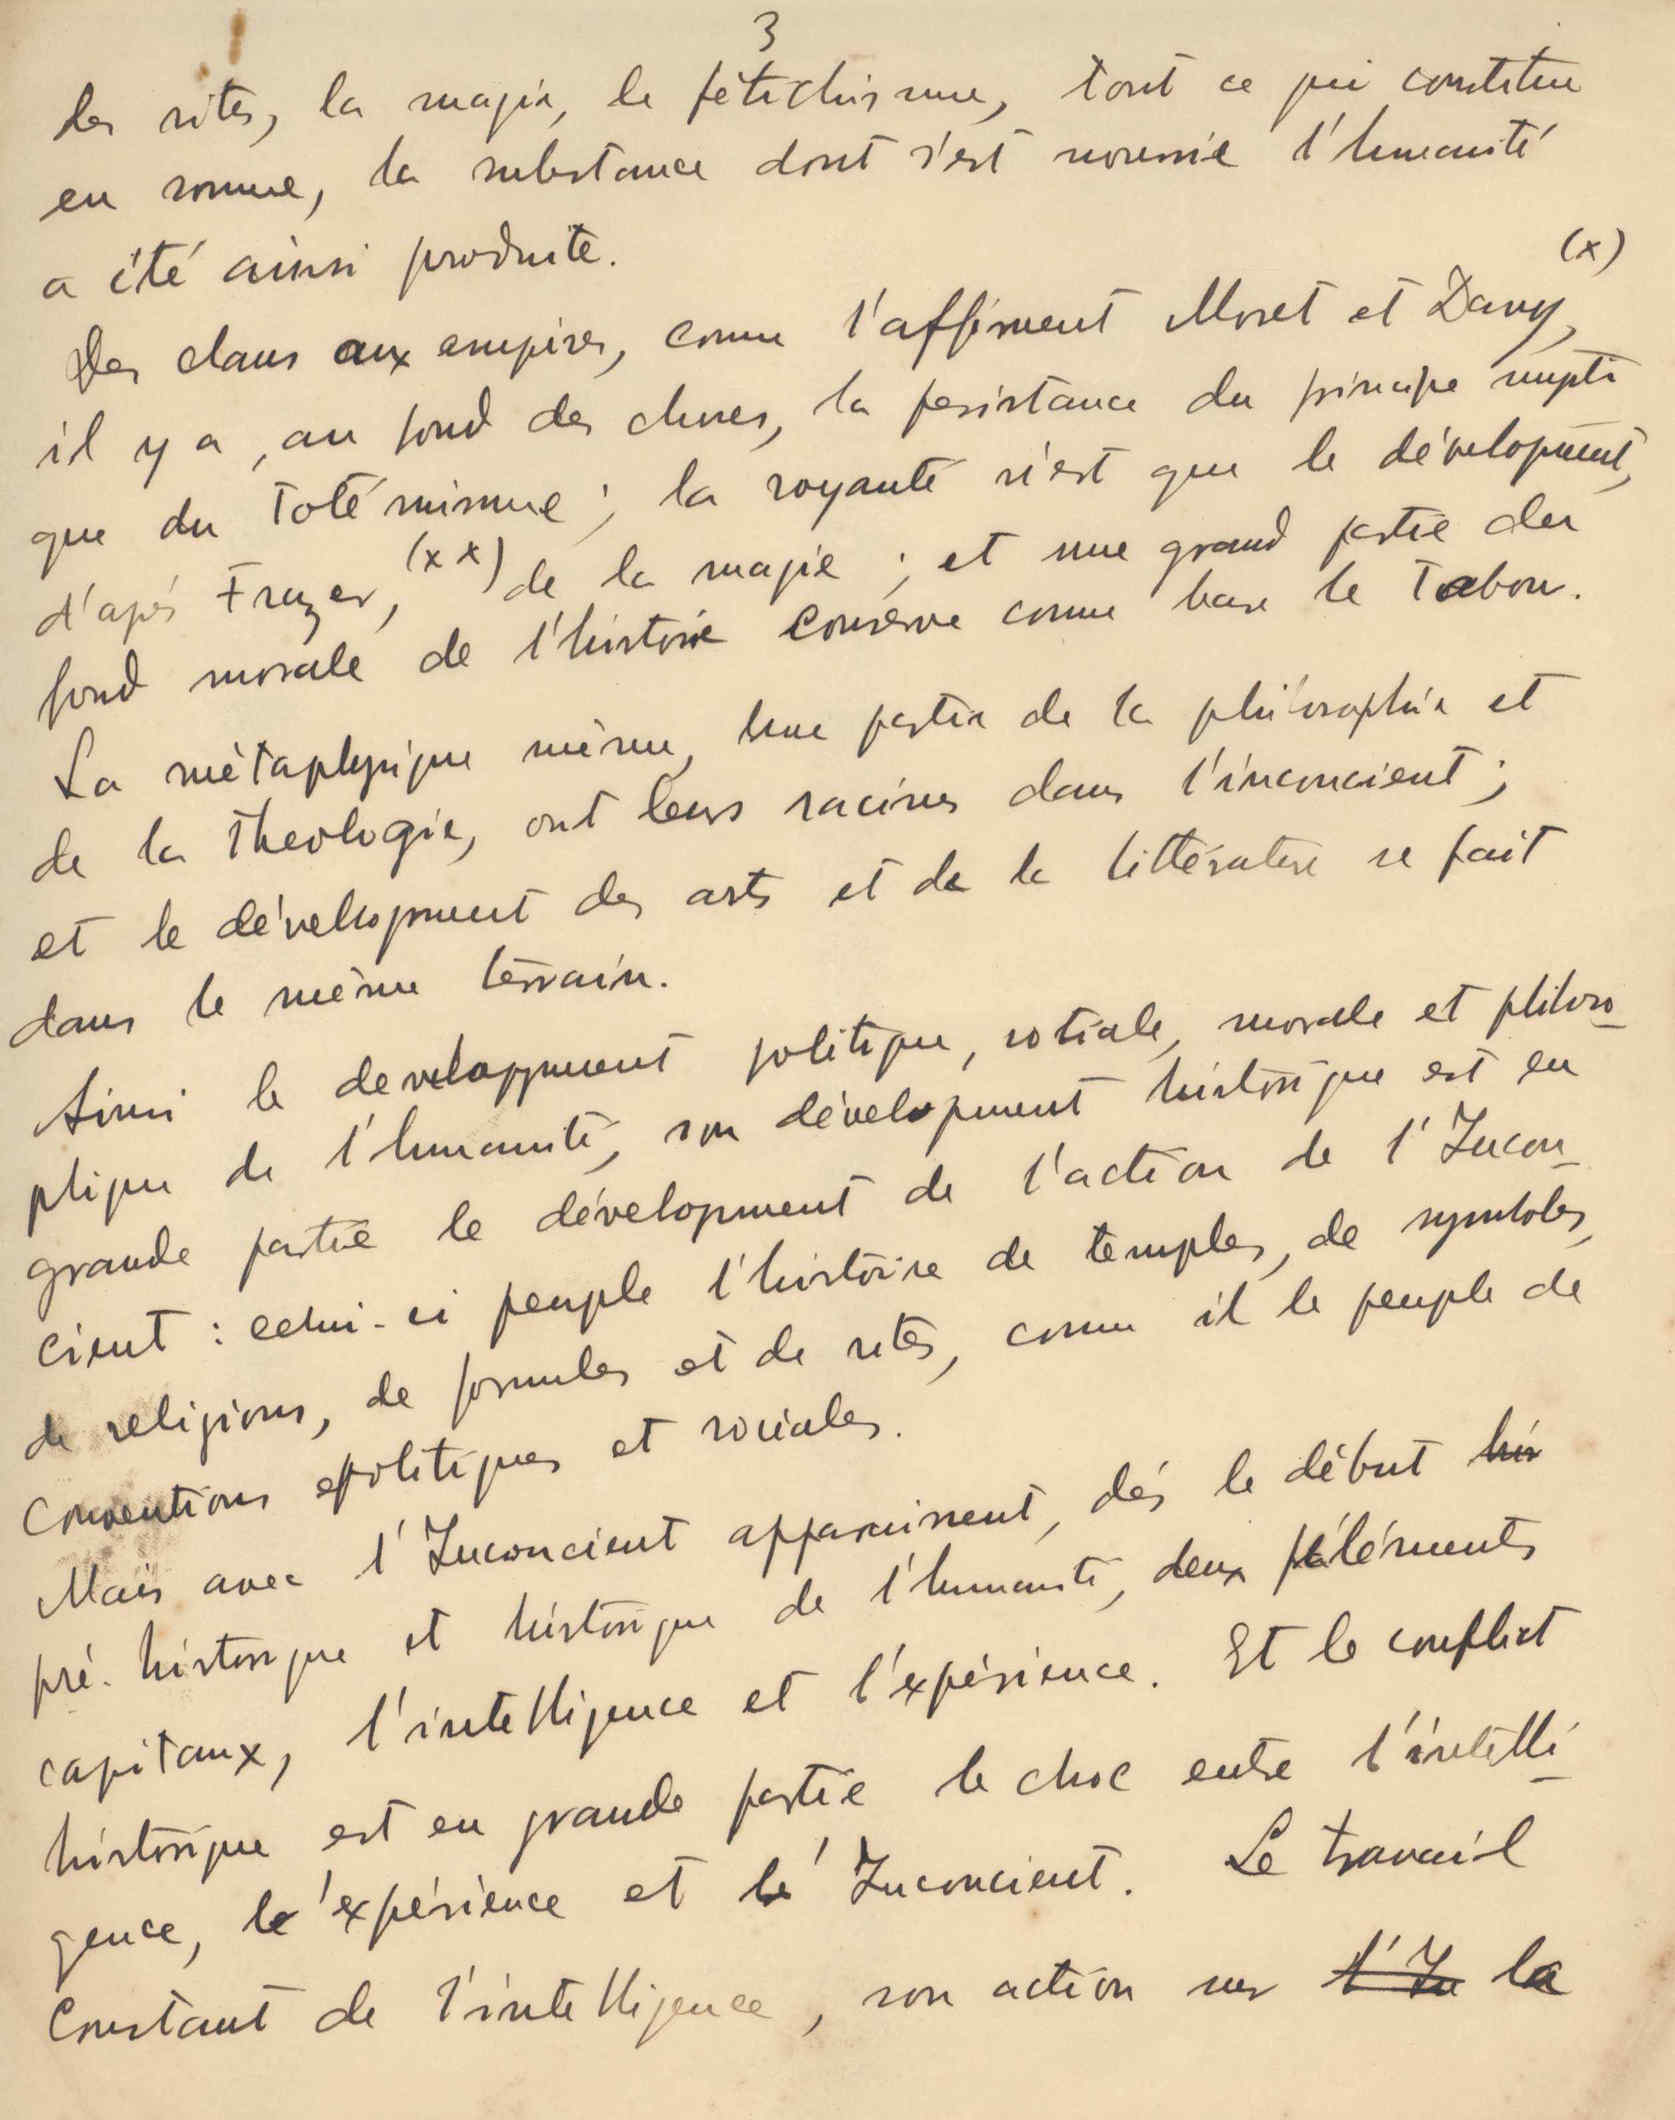 3
des rites, la magie, le fétichisme, tout ce qui constitue
en somme, la substance dont s'est nourrie l'humanité
a été ainsi produite.
Des clans aux empires, comme l'affirment Moret et Davy, (x)
il y a, au fond des choses, la persistance du principe mysti
que du Totémisme ; la royauté n'est que le dévelopment,
d'apés Frazer, (x x) de la magie ; et une grand partie du
fond morale de l'histoire conserve comme base le Tabou.
La métaphysique même, une partie de la philosophie et
de la Theologie, ont leurs racines dans l'inconcient ;
et le dévelopment des arts et de la littérature se fait
dans le même terrain.
Ainsi le developpment politique, sotiale, morale et philoso_
phique de l'humanité, son dévelopment historique est en
grande partie le dévelopment de l'action de l'Incon_
cient : celui-ci peuple l'histoire de temples, de symboles,
de religions, de formules et de rites, comme il le peuple de
conventions politiques et sociales.
Mais avec l'Inconcient apparaissent, dés le début his
pré-historique et historique de l'humanité, deux éléments
capitaux, l'intelligence et l'expérience. Et le conflict
historique est en grande partie le choc entre l'intelli_
gence, l'expérience et l'Inconcient. Le travail
constant de l'intelligence, son action sur l'In la